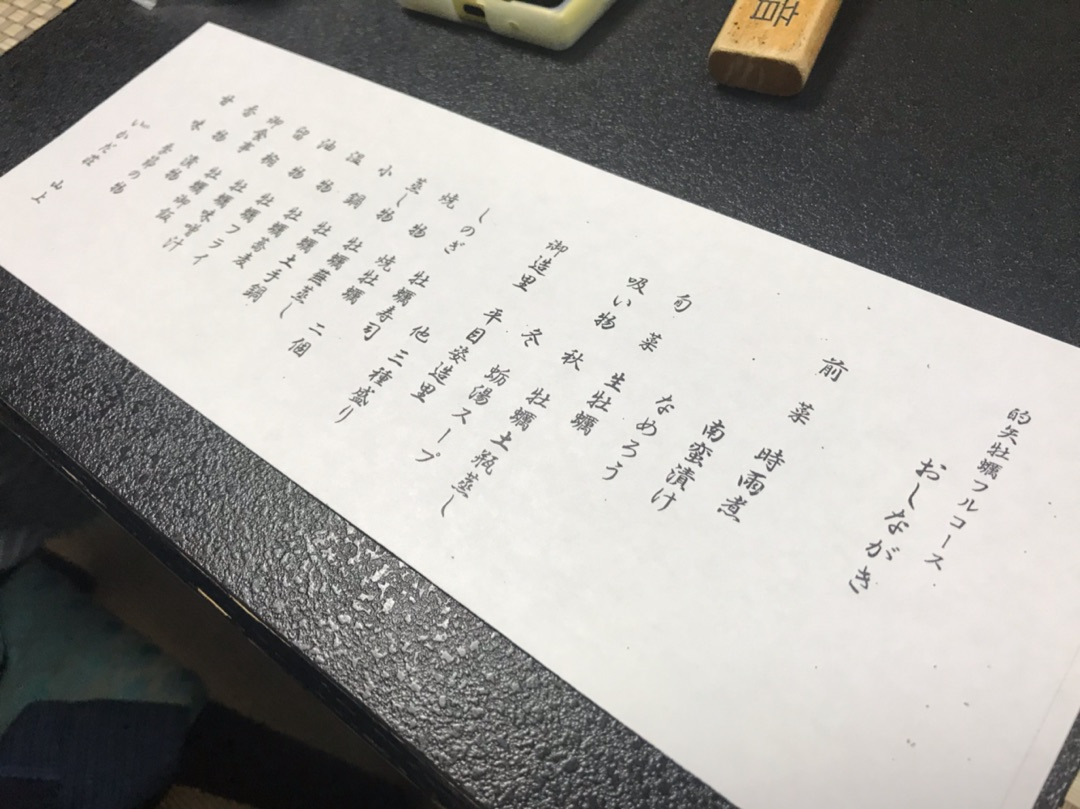 的矢牡蠣フルコース
おしながき
前菜 時雨煮
南蛮漬け
なめろう
旬菜 生牡蠣
吸い物 秋 牡蠣土瓶蒸し
冬 蛎湯スープ
御造里 平目姿造里
他三種盛り
しのぎ 牡蠣寿司
焼物 焼牡蠣 二個
蒸し物 牡蠣蕪蒸し
小鍋 牡蠣土手鍋
温物 牡蠣蕎麦
油物 牡蠣フライ
留椀 牡蠣味噌汁
御食事 牡蠣御飯
香物 漬物
甘味 季節の物
いかだ荘 山上
音